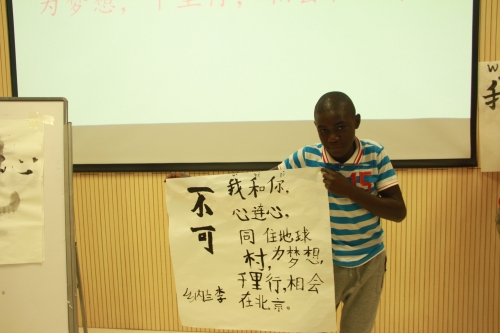 为梦想，千里行，相会
W
我
心
不可
我和你，
心连心，
同住地球
村，为梦想，
千里行，相会
在北京。
15